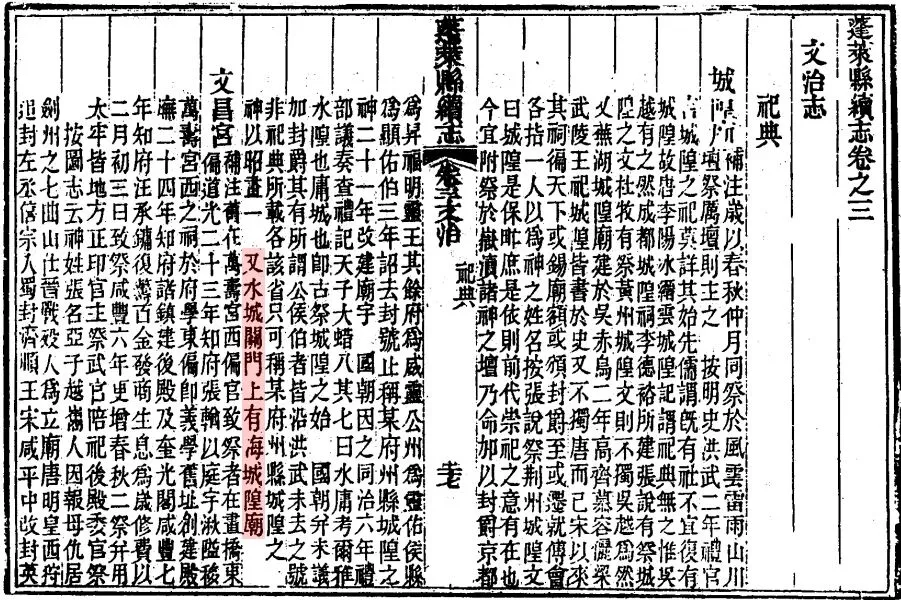 蓬萊縣續志卷之三
文治志
祀典
城隍 補注歲以春秋仲月同祭於風雲雷雨山川
壇祭厲壇則主之 按明史洪武二年禮官
言城隍之祀莫詳其始先儒謂既有社不宜復有
城隍故唐李陽冰縉雲城隍記謂祀典無之惟吳
越有之然成都城隍祠李德裕所建張說有祭城
隍之文杜牧有祭黃州城隍文則不獨吳越為然
又蕪湖城隍廟建於吳赤烏二年高齊慕容儼梁
武陵王祀城隍皆書於史又不獨唐而已宋以來
其祠徧天下或錫廟額或頒封爵至或遷就傅會
各指一人以為神之姓名按張說祭荆州城隍文
曰城隍是保甿庶是依則前代崇祀之意有在也
今宜附祭於嶽瀆諸神之壇乃命加以封爵京都
蓬萊縣續志 卷之三文治 祀典
為昇福明靈王其餘府為威靈公州為靈佑侯縣
為顯佑伯三年詔去封號止稱某府州縣城隍之
神二十一年改建廟宇 國朝因之同治六年禮
部議奏查禮記天子大蜡八其七曰水庸考爾雅
水隍也庸城也卽古祭城隍之始 國朝弁未議
加封爵其有所謂公侯伯者皆沿洪武未去之號
非祀典所載各該省只可稱某府州縣城隍之
神以昭畫一 又水城關門上有海城隍廟
文昌宮 補注舊在萬壽宮西備官致祭者在畫橋東
偏道光二十三年知府張輈以庭宇湫隘移
萬壽宮西之祠於府學東偏卽義學舊址創建殿
廡二十四年知府諸鎮建後殿及奎光閣咸豐七
年知府汪承鏞復籌百金發商生息為歲修費以
二月初三日致祭咸豐六年更增春秋二祭弁用
太牢皆地方正印官主祭武官陪祀後殿委官祭
按圖志云神姓張名亞子越嶲人因報母仇居
劍州之七曲山仕晉戰歿人為立廟唐明皇西狩
追封左丞僖宗入蜀封濟順王宋咸平中改封英